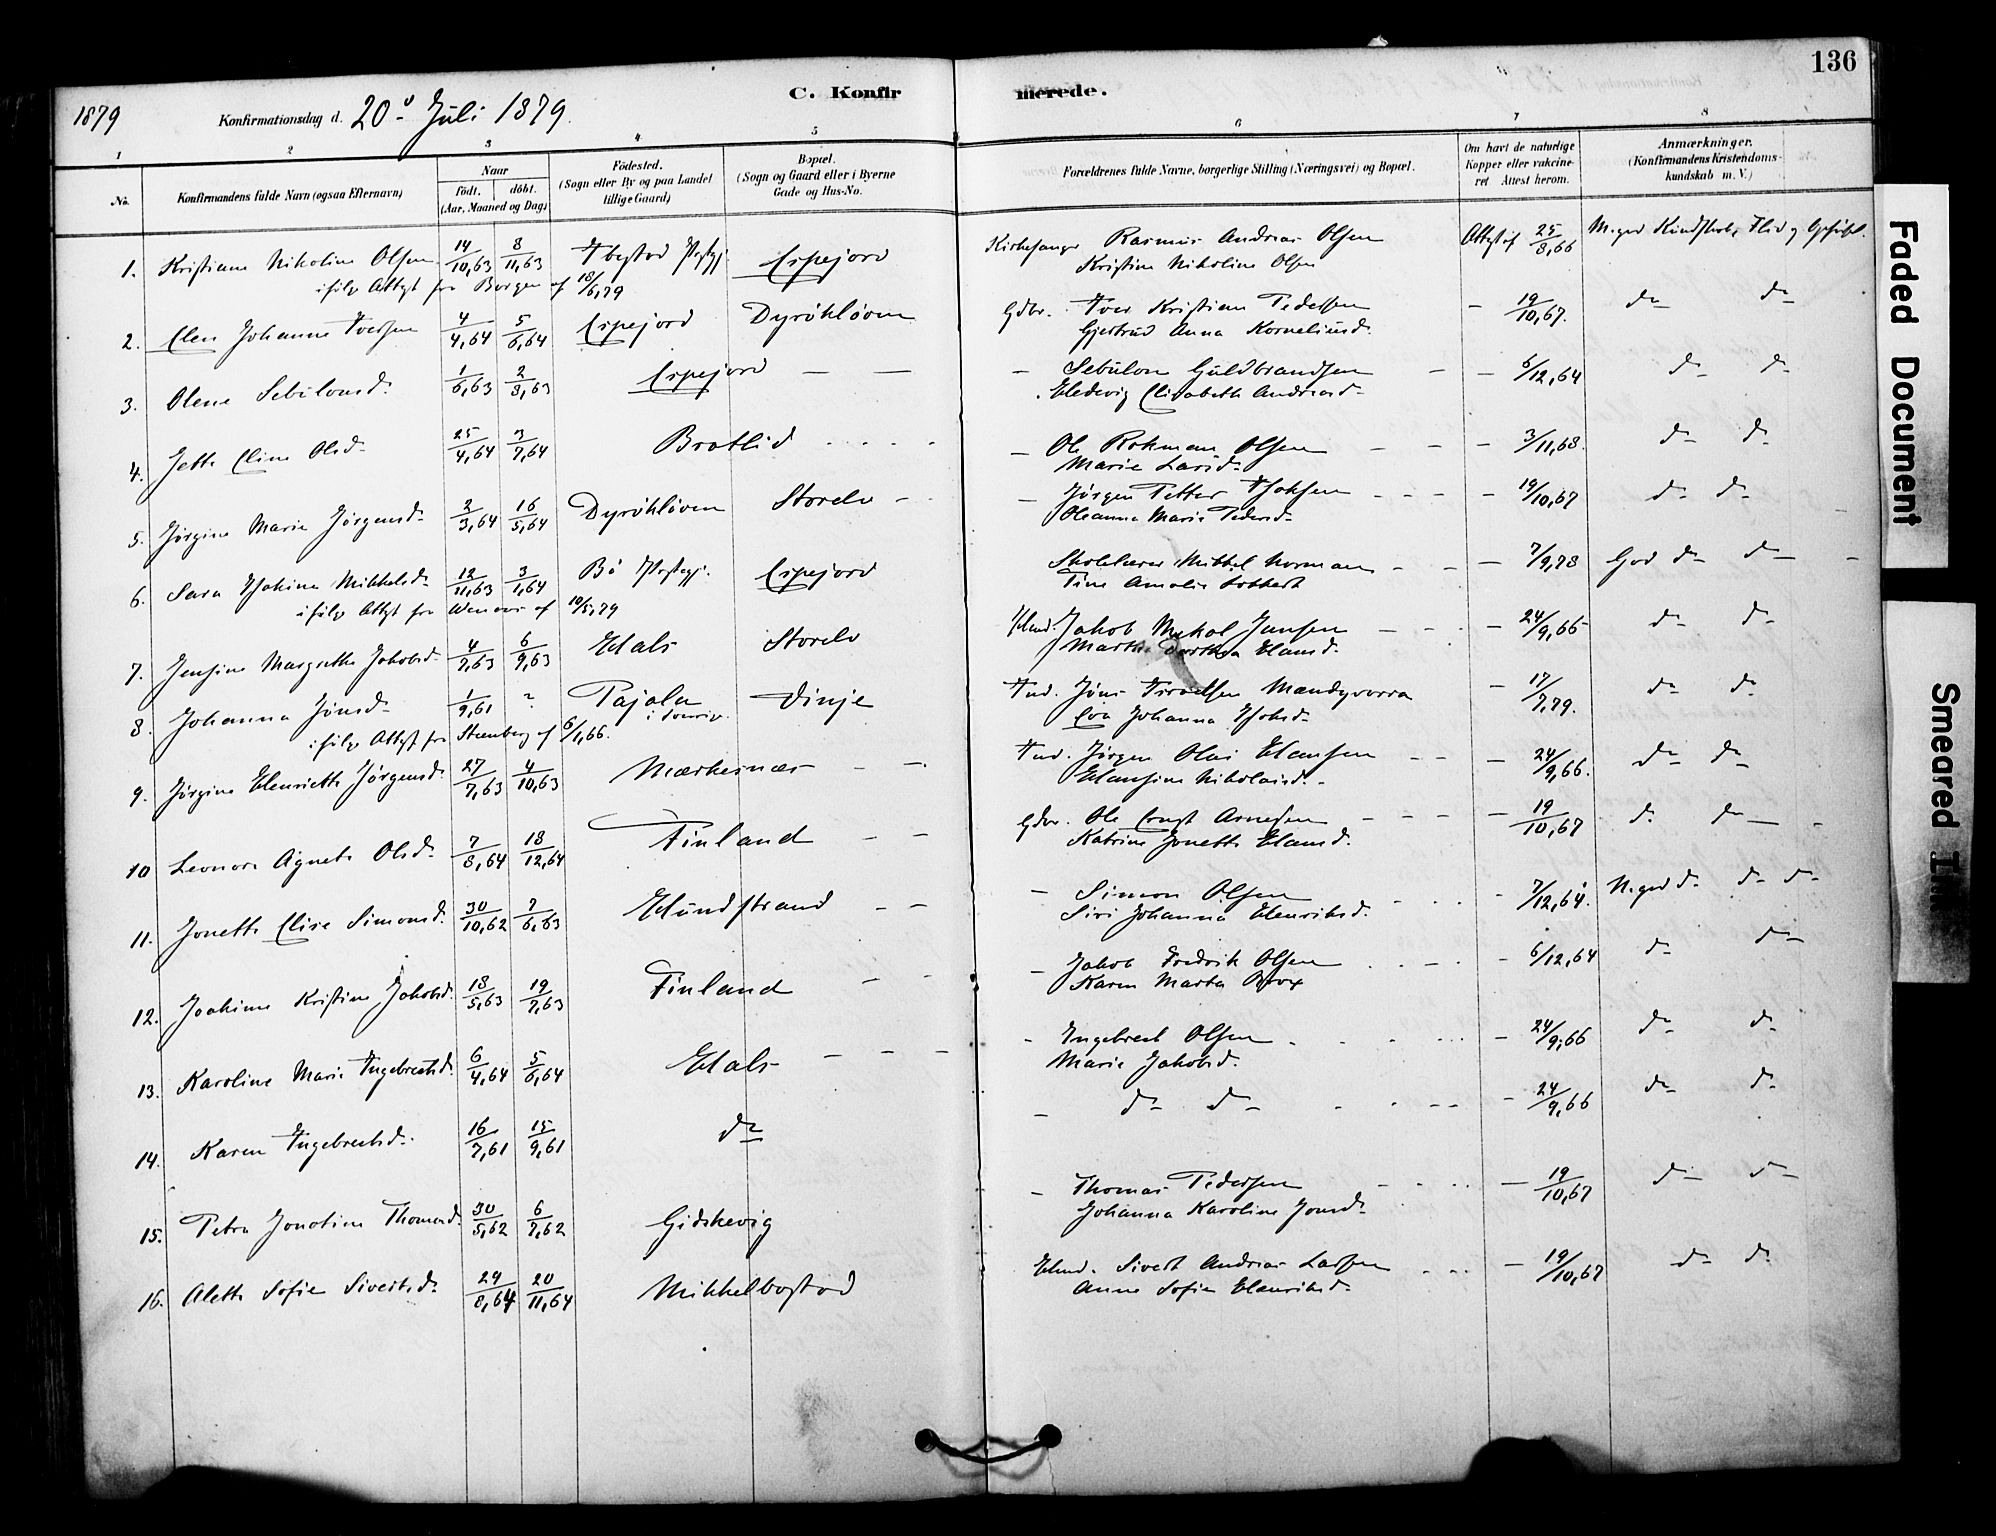 136
1879
Konfirmationsdag d. 20de Juli 1879.
C. Konfirmerede.
1 2 3 4 5 6 7 8
No.
Konfirmandens fulde Navn (ogsaa Efternavn)
Naar
født. døbt.
(Aar, Maaned og Dag)
Fødested.
(Sogn eller By og paa Landet
tillige Gaard)
Bopæl.
(Sogn og Gaard eller i Byerne
Gade og Hus-No.
Forældrenes fulde Navne, borgerlige Stilling (Næringsvei) og Bopæl.
Om havt de naturlige
Kopper eller vakcine-
ret Attest herom.
Anmærkninger.
(Konfirmandens Kristendoms-
kundskab m. V.)
1. Kristiane Nikoline Olsen 14/10,63 8/11,63 Ibestad Prstgj. Espejord Kirkesanger Rasmus Andreas Olsen Attest af 25/8,66 M. god Kundskab, Flid og
Kristine Nikoline Olsen
ifølge Attest fra Borgen af 18/6,79
2. Elen Johanne Iversen 4/4,64 5/6,64 Espejord Dyrøkløven Gdbr. Iver Kristian Pedersen - 19/10,67. do do
Gjertrud Anna Korneliusd.
3. Olene Sebulonsd. 1/6,63 2/8,63 Espejord — — - Sebulon Guldbrandsen - - 6/12,64 do do
Hedevig Elisabeth Andreasd.
4. Jette Eline Olsd. 25/4,64 3/7,64 Brotlid - Ole Rokman Olsen - - - 3/11,68. do do
Marie Larsd.
5. Jørgine Marie Jørgensd. 2/3,64 16/5,64 Dyrøkløven Storelv - - Jørgen Petter Isaksen - - - - 19/10,67 do do
Oleanna Marie Pedersd.
6. Sara Jakine Mikkelsd. 12/11,63 3/1,64 Bø Prstgj. Espejord Skolelærer Mikkel Norman - - - 7/9,78 God do do
Tine Amalie Lokkert
ifølge Attest fra af 10/5,79
7. Jensine Margrethe Jakobsd. 4/7,63 6/9,63 Hals Storelv Hmd. Jakob Mikal Jensen - - - 24/9,66 do do
Marthe Dorthea Hansd.
8. Johanna Jonsd. 1/9,61 ? Pajala Vinje Ind. Jøns - 17/7,79. do do
Eva Johanna Isaksd.
ifølge Attest fra Steenberg af 6/1,66.
9. Jørgine Henriette Jørgensd. 27/7,63 4/10,63 Mærkesnæs - - Ind. Jørgen Olai Hansen - - - 24/9,66. do do
Hansine Nikolaisd.
10 Leonore Agnete Olsd. 7/8,64 18/12,64 Finland - - Gdbr. Ole Ernst Arnesen - - - - 19/10,67 do do
Katrine Jonette Hansd.
11. Jonette Elise Simonsd. 30/10,62 7/6,63 Hundstrand - - - Simon Olsen - 7/12,64. M. god do do do
Siri Johanna Henriksd.
12. Joakime Kristine Jakobsd. 18/5,63 19/7,63 Finland - - - Jakob Fredrik Olsen - - 6/12,64 do do
Karen Marta Brox
13. Karoline Marie Ingebretsd. 6/4,64 5/6,64 Hals - - - - Ingebret Olsen - 24/9,66 do do
Marie Jakobsd.
14. Karen Ingebretsd. 16/7,61 15/9,61 do - do do - 24/9,66 do do
15. Petra Jonotine Thomasd. 30/5,62 6/7,62 Gidskevig - Thomas Pedersen - - 19/10,67 do do
Johanna Karoline Jonsd.
16. Alette Sofie Sivertsd. 29/8,64 20/11,64 Mikkelbostad Hmd. Sivert Andreas Larsen - 19/10,67 do do
Anne Sofie Henriksd.
Faded Document
Smeared Ink